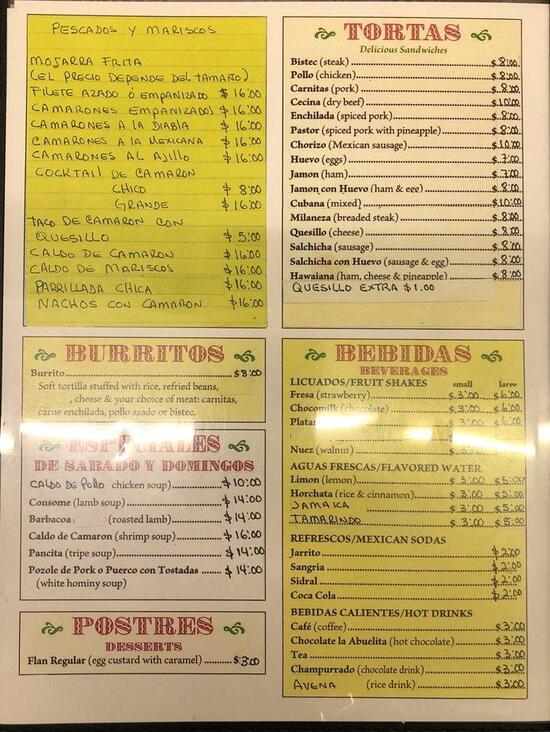 PESCADOS Y MARISCOS
MOJARRA FRITA
(EL PRECIO DEPENDE DEL TAMAÑO)
FILETE AZADO O EMPANIZADO $16:00
CAMARONES EMPANIZADOS $16:00
CAMARONES A LA DIABLA $16:00
CAMARONES A LA MEXICANA $16:00
CAMARONES AL AJILLO $16:00
COCKTAIL DE CAMARON
CHICO $8:00
GRANDE $16:00
TACO DE CAMARON CON
QUESILLO $5:00
CALDO DE CAMARON $16:00
CALDO DE MARISCOS $16:00
PARRILLADA CHICA $16:00
NACHOS CON CAMARON $16:00
BURRITOS
Burrito $8:00
Soft tortilla stuffed with rice, refried beans,
, cheese & your choice of meat: carnitas,
carne enchilada, pollo asado or bistec.
ESPECIALES
DE SABADO Y DOMINGOS
CALDO DE POLLO chicken soup) $10:00
Consome (lamb soup) $14:00
Barbacoa (roasted lamb) $14:00
Caldo de Camaron (shrimp soup) $16:00
Pancita (tripe soup) $14:00
Pozole de Pork o Puerco con Tostadas $14:00
(white hominy soup)
POSTRES
DESSERTS
Flan Regular (egg custard with caramel) $3:00
TORTAS
Delicious Sandwiches
Bistec (steak) $8:00
Pollo (chicken) $8:00
Carnitas (pork) $8:00
Cecina (dry beef) $10:00
Enchilada (spiced pork) $8:00
Pastor (spiced pork with pineapple) $8:00
Chorizo (Mexican sausage) $10:00
Huevo (eggs) $7:00
Jamon (ham) $7:00
Jamon con Huevo (ham & egg) $8:00
Cubana (mixed) $10:00
Milaneza (breaded steak) $8:00
Quesillo (cheese) $8:00
Salchicha (sausage) $8:00
Salchicha con Huevo (sausage & egg) $8:00
Hawaiana (ham, cheese & pineapple) $8:00
QUESILLO EXTRA $1.00
BEBIDAS
BEVERAGES
LICUADOS/FRUIT SHAKES small large
Fresa (strawberry) $3:00 $6:00
Chocomilk (chocolate) $3:00 $6:00
Platan $3:00 $6:00
Nuez (walnut)
AGUAS FRESCAS/FLAVORED WATER
Limon (lemon) $3:00 $5:00
Horchata (rice & cinnamon) $3:00 $5:00
JAMAICA $3:00 $5:00
TAMARINDO $3:00 $5:00
REFRESCOS/MEXICAN SODAS
Jarrito $2:00
Sangria $2:00
Sidral $2:00
Coca Cola $2:00
BEBIDAS CALIENTES/HOT DRINKS
Café (coffee) $3:00
Chocolate la Abuelita (hot chocolate) $3:00
Tea $3:00
Champurrado (chocolate drink) $3:00
AVENA (rice drink) $3:00